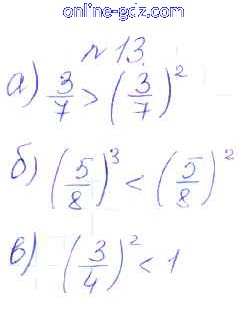 online-gdz.com
№ 13.
а) 3/7 > (3/7)²
б) (5/8)³ < (5/8)²
в) (3/4)² < 1